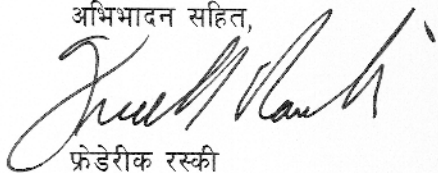 अभिभादन सहित,
फ्रेडेरीक रस्की